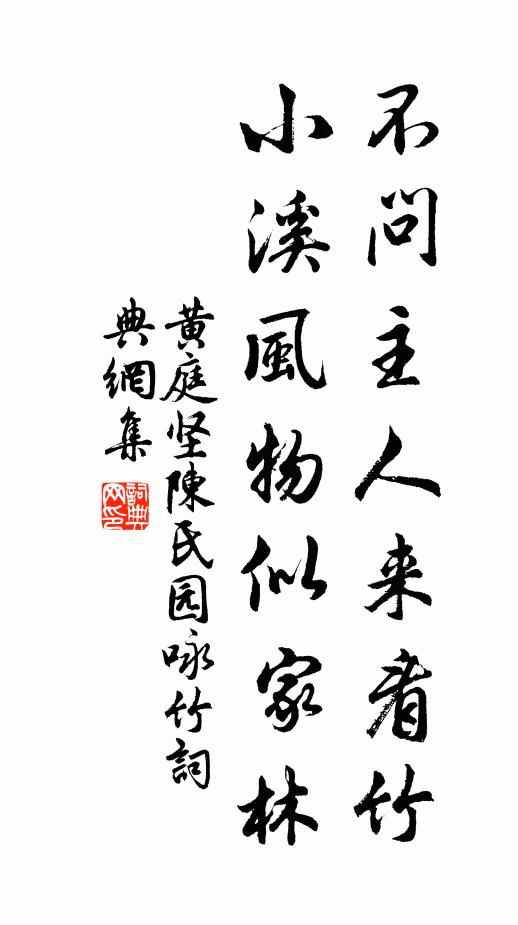 不問主人来看竹
小溪風物似家林
黄庭坚陳氏园咏竹詞
典網集
詞典网印